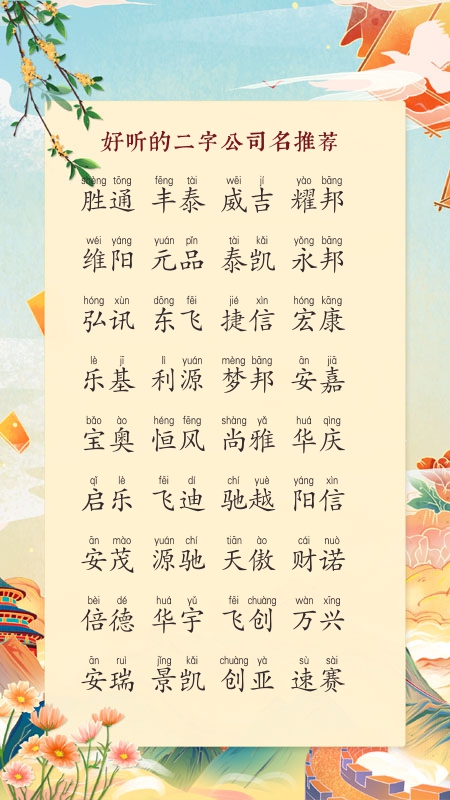 好听的二字公司名推荐
shèng tōng fēng tài wēi jí yào bāng
胜通 丰泰 威吉 耀邦
wéi yáng yuán pǐn tài kǎi yǒng bāng
维阳 元品 泰凯 永邦
hóng xùn dōng fēi jié xìn hóng kāng
弘讯 东飞 捷信 宏康
lè jī lì yuán mèng bāng ān jiā
乐基 利源 梦邦 安嘉
bǎo ào héng fēng shàng yǎ huá qìng
宝奥 恒风 尚雅 华庆
qǐ lè fēi dí chí yuè yáng xìn
启乐 飞迪 驰越 阳信
ān mào yuán chí tiān ào cái nuò
安茂 源驰 天傲 财诺
bèi dé huá yǔ fēi chuàng wàn xīng
倍德 华宇 飞创 万兴
ān ruì jǐng kǎi chuàng yà sù sài
安瑞 景凯 创亚 速赛